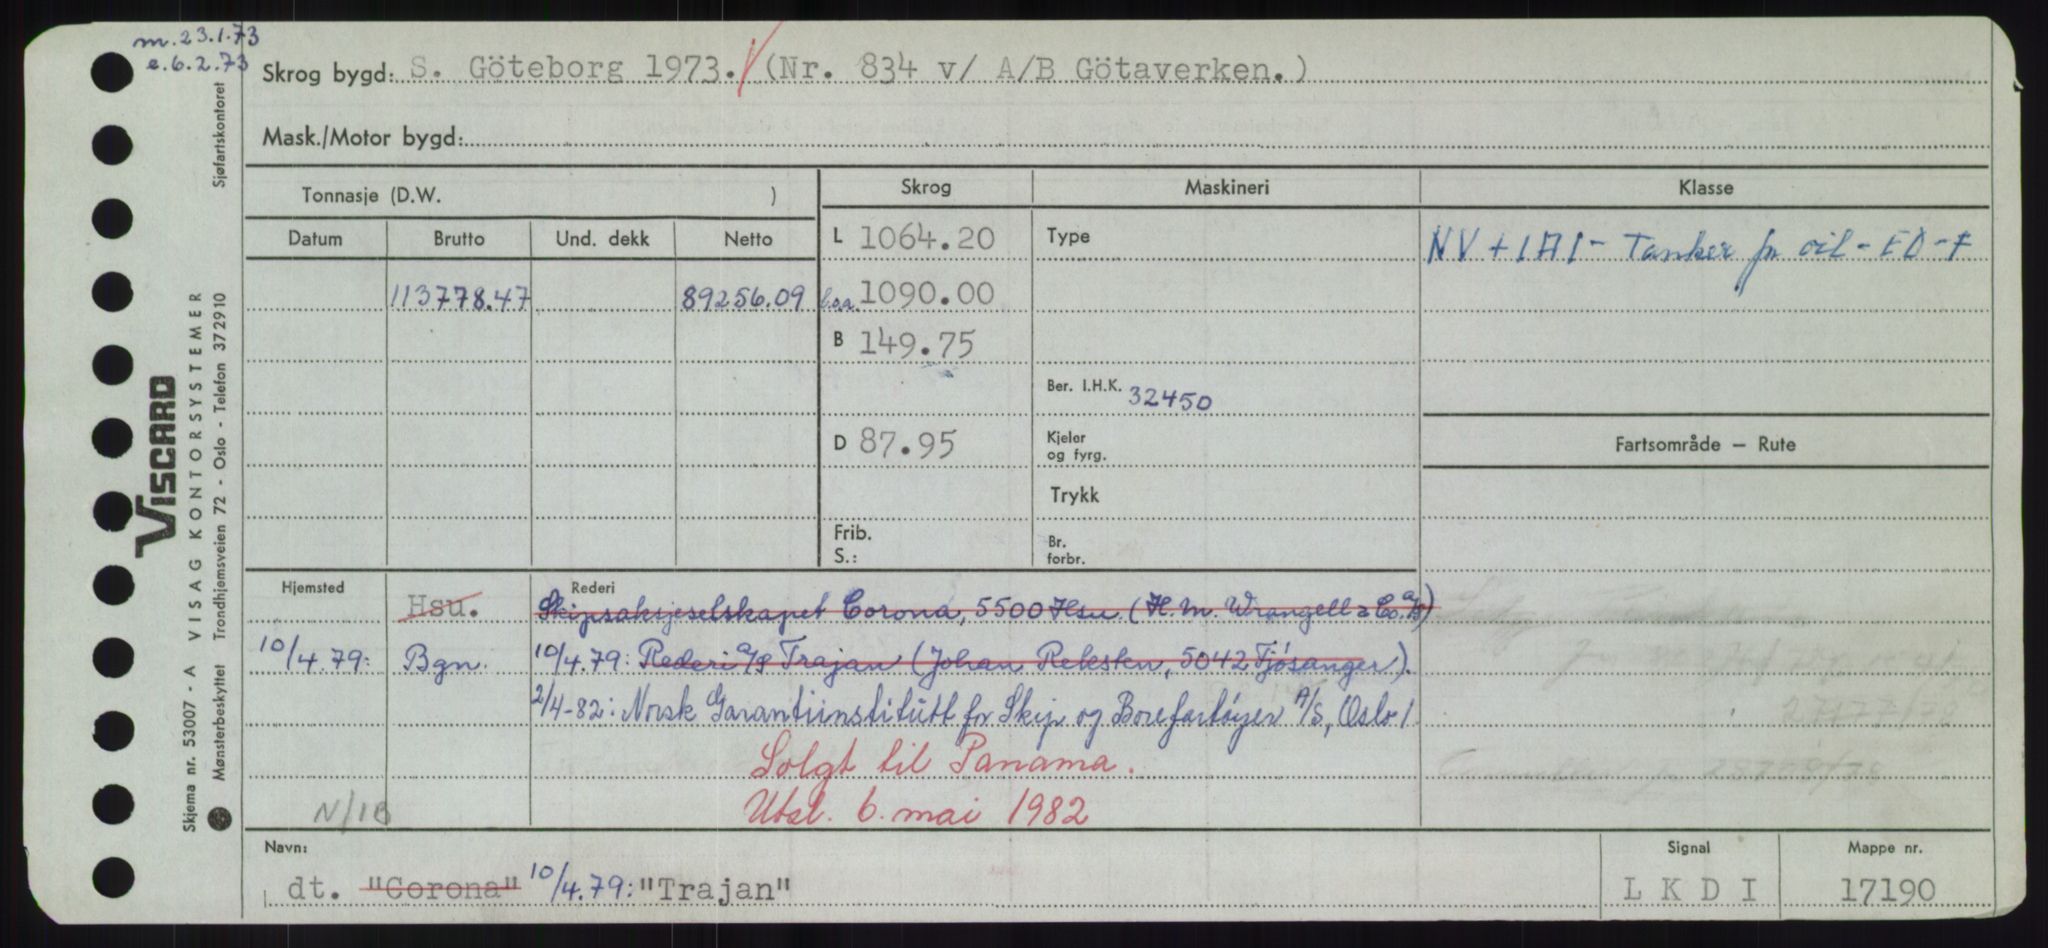 m. 23.1.73
e. 6.2.73
Skrog bygd: S. Göteborg 1973. (Nr. 834 v/ A/B Götaverken.)
Mask./Motor bygd:
Tonnasje (D.W. )
Skrog Maskineri Klasse
Datum Brutto Und. dekk Netto
L 1064.20 Type NV + 1A1 - Tanker for oil - EO - F
113778.47 89256.09 l.o.a. 1090.00
B 149.75
Ber. I.H.K. 32450
D 87.95 Kjeler og fyrg. Fartsområde — Rute
Trykk
Frib. S.: Br. forbr.
Hjemsted Rederi
Hsu. Skipsaksjeselskapet Corona, 5500 Hsu (H.M. Wrangell & Co. A/S)
10/4.79: Bgn. 10/4.79: Rederi A/S Trajan (Johan Reksten, 5042 Fjøsanger).
2/4-82: Norsk Garantiinstitutt for Skip og Borefartøyer A/S, Oslo 1
Solgt til Panama.
Utsl. 6. mai 1982
N/1B
Navn: Signal Mappe nr.
dt. "Corona" 10/4.79: "Trajan" L K D I 17190
Sjøfartskontoret
VISCARD
VISAG KONTORSYSTEMER
Trondhjemsveien 72 - Oslo - Telefon 372910
Skjema nr. 53007 - A
Mønsterbeskyttet